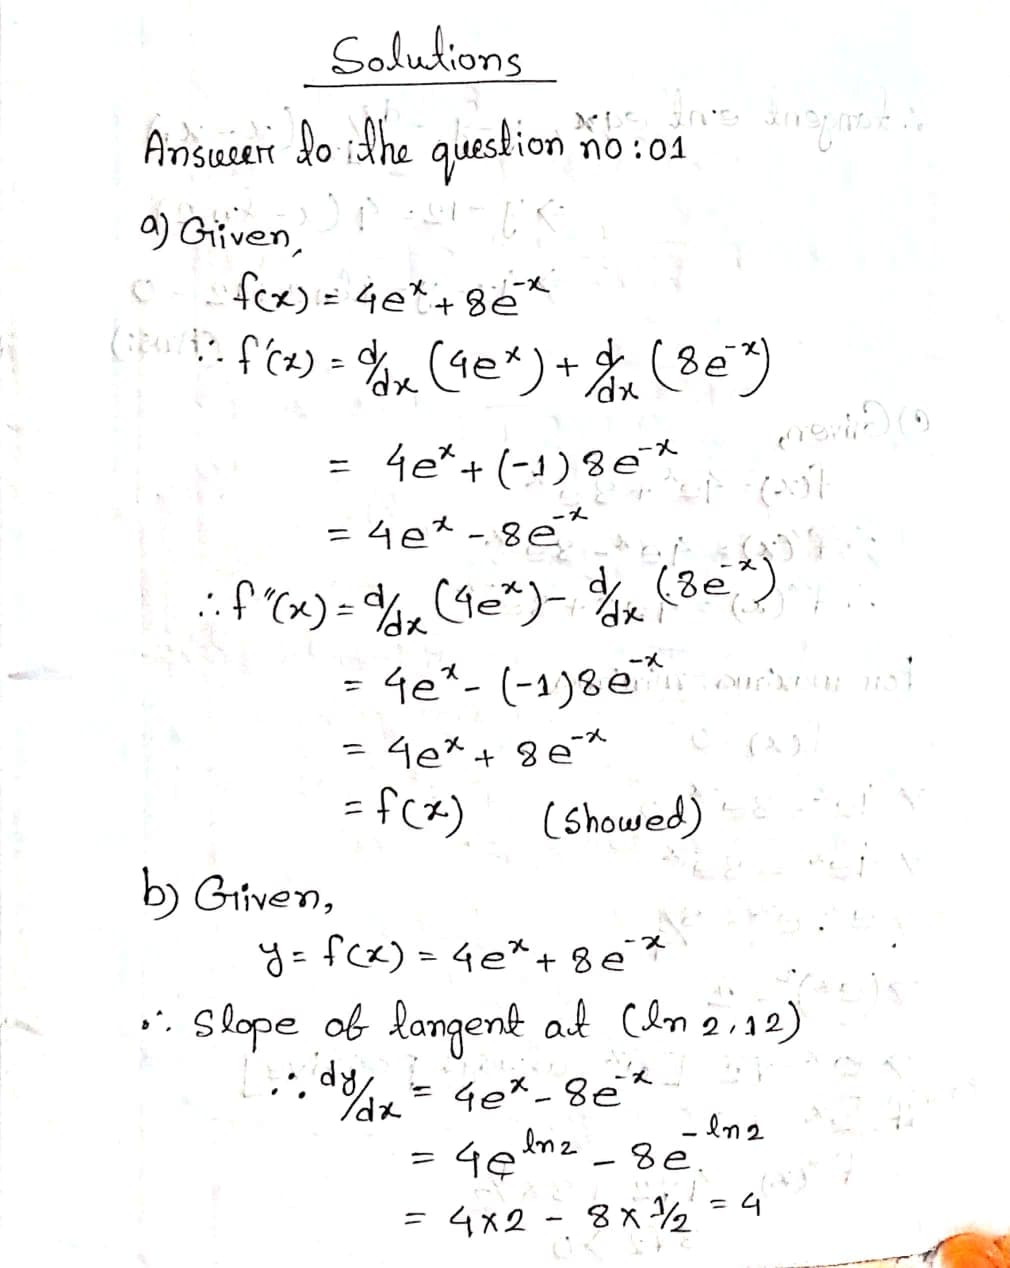 Solutions
Answer to the question no : 01
a) Given,
f(x) = 4e^x + 8e^-x
∴ f'(x) = d/dx (4e^x) + d/dx (8e^-x)
= 4e^x + (-1) 8e^-x
= 4e^x - 8e^-x
∴ f''(x) = d/dx (4e^x) - d/dx (8e^-x)
= 4e^x - (-1) 8e^-x
= 4e^x + 8e^-x
= f(x) (Showed)
b) Given,
y = f(x) = 4e^x + 8e^-x
∴ Slope of tangent at (ln 2, 12)
∴ dy/dx = 4e^x - 8e^-x
= 4e^ln 2 - 8e^-ln 2
= 4 x 2 - 8 x 1/2 = 4